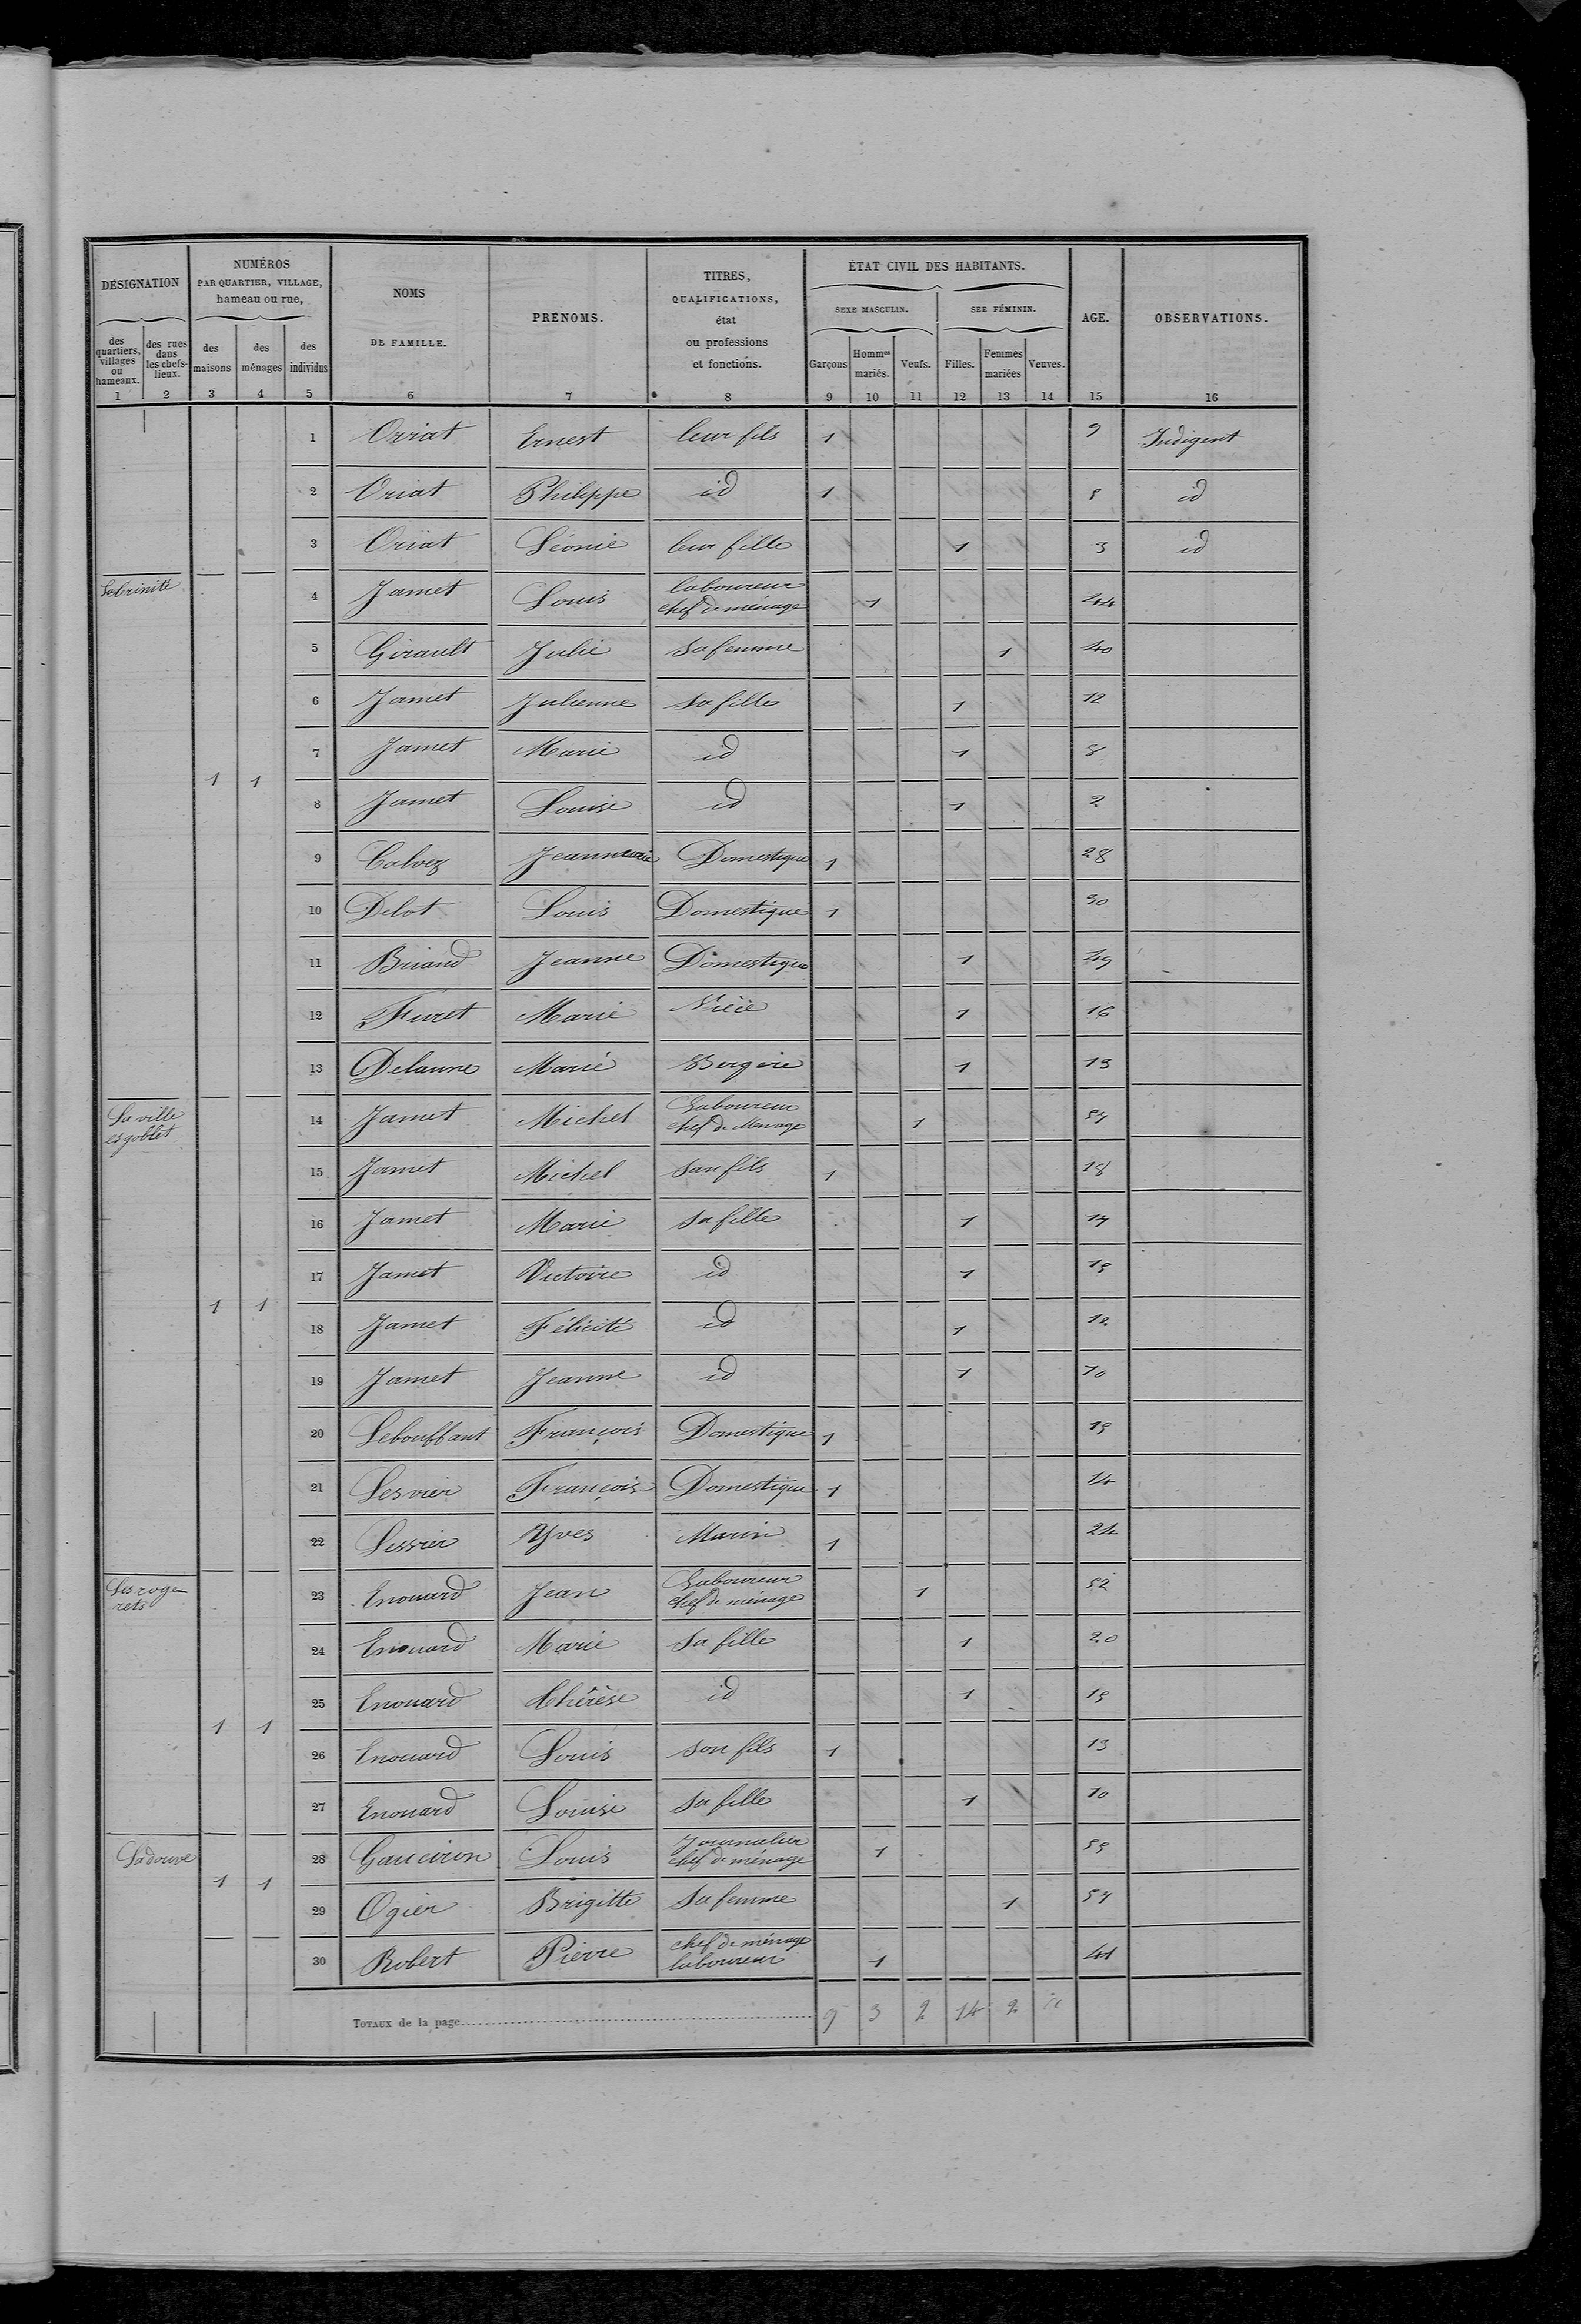 DÉSIGNATION
NUMÉROS
PAR QUARTIER, VILLAGE,
hameau ou rue,
NOMS
DE FAMILLE.
PRÉNOMS.
TITRES,
QUALIFICATIONS,
état
ou professions
et fonctions.
ÉTAT CIVIL DES HABITANTS.
SEXE MASCULIN.
SEE FÉMININ.
AGE.
OBSERVATIONS.
des quartiers, villages ou hameaux.
des rues dans les chefs-lieux.
des maisons
des ménages
des individus
Garçons
Hommes mariés.
Veufs.
Filles.
Femmes mariées
Veuves.
1 2 3 4 5 6 7 8 9 10 11 12 13 14 15 16
1 Orriat Ernest leur fils 1 9 Indigent
2 Oriat Philippe id 1 5 id
3 Oriat Léonie leur fille 1 3 id
4 Jamet Louis laboureur chef de ménage 1 44
5 Girault Julie sa femme 1 40
6 Jamet Julienne sa fille 1 12
7 Jamet Marie id 1 8
1 1
8 Jamet Louise id 1 2
9 Calvez Jeanmarie Domestique 1 28
10 Delot Louis Domestique 1 30
11 Briand Jeanne Domestique 1 49
12 Furet Marie Nièce 1 16
13 Delaune Marie Bergère 1 13
La ville
es goblet
14 Jamet Michel Laboureur chef de Ménage 1
15 Jamet Michel son fils 1 18
16 Jamet Marie sa fille 1
17 Jamet Victoire id 1 15
1 1
18 Jamet Félicité id 1 12
19 Jamet Jeanne id 1 10
20 Lebouffant François Domestique 1
21 Lesvier François Domestique 1 14
22 Lesvier Yves Marin 1 24
Les roge-
rets
23 Enouard Jean Laboureur chef de ménage 1 52
24 Enouard Marie Sa fille 1 20
25 Enouard Thérèse id 1 15
1 1
26 Enouard Louis son fils 1 13
27 Enouard Louise sa fille 1 10
Ladouve
28 Gauciron Louis Journalier chef de ménage 1
1 1
29 Ogier Brigitte sa femme 1
30 Robert Pierre chef de ménage laboureur 1 41
TOTAUX de la page 9 3 2 14 2 "